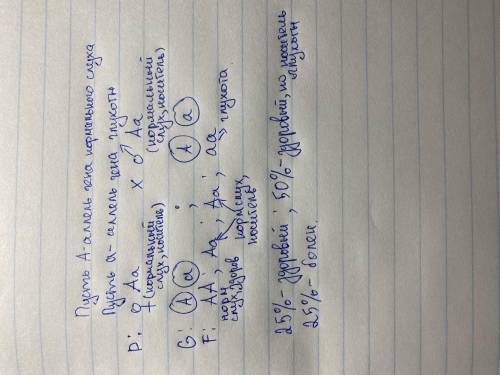 Пусть А-аллель гена нормального слуха
Пусть а- аллель гена глухоты
Р: ♀ Аа х ♂ Аа
(нормальный слух, носитель) (нормальный слух, носитель)
G: А а ; А а
F: АА ; Аа ; Аа ; аа
норм слух, здоров норм слух, носитель, → глухота
25%- здоровый ; 50%- здоровый, но носитель глухоты
25%- болен.